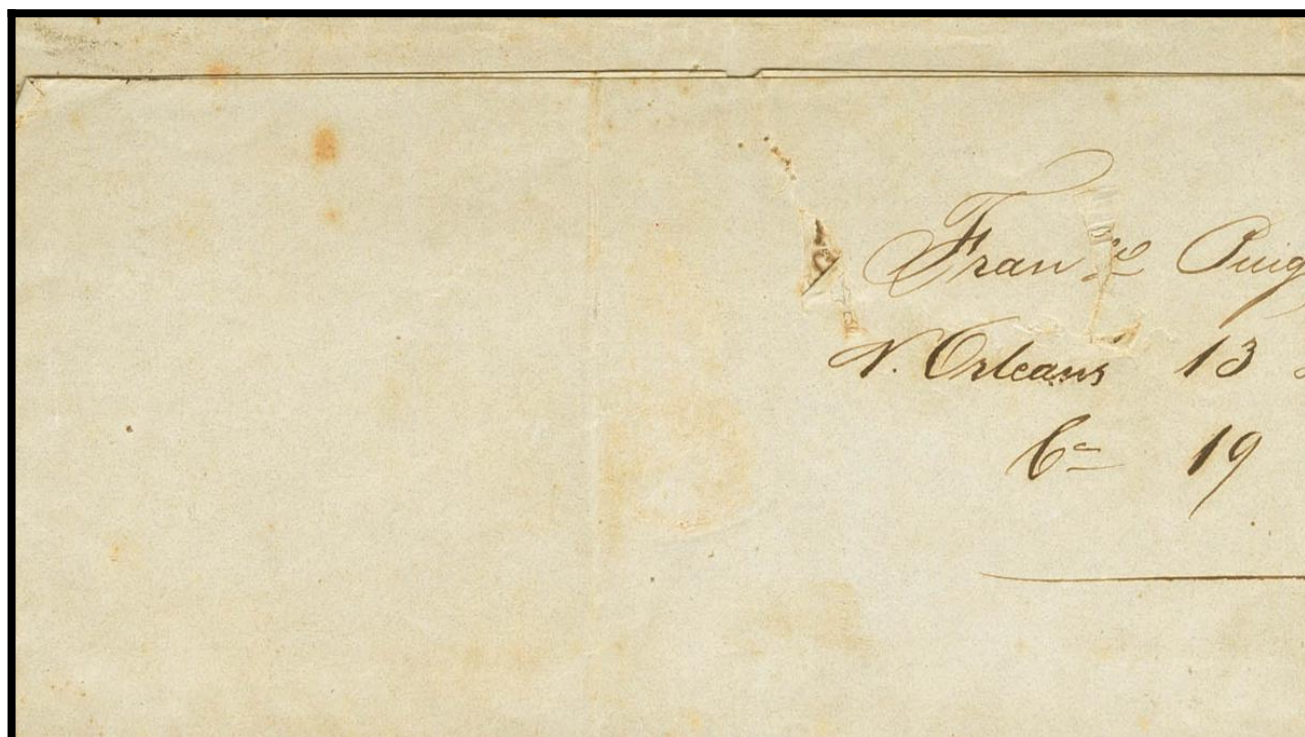 Fran^co Puig
N. Orleans 13
C^a 19